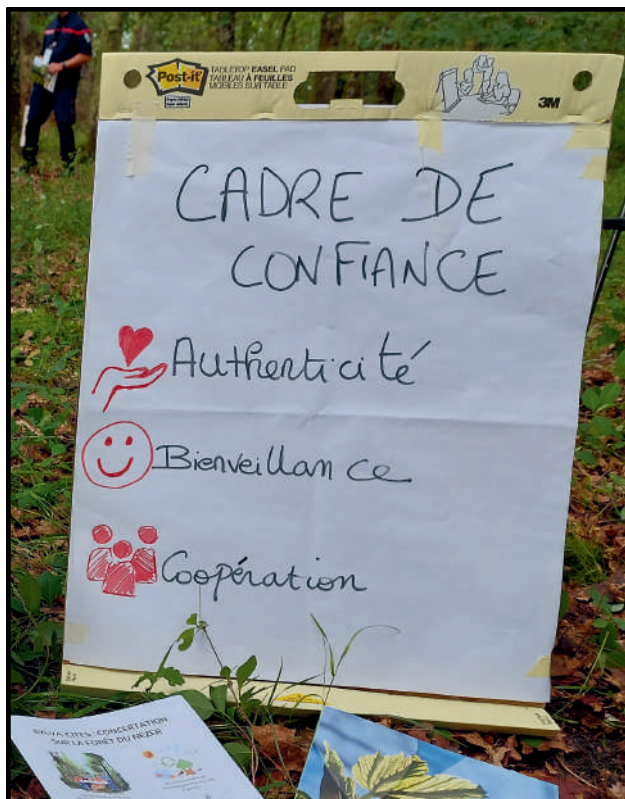 Post-it
TABLETOP EASEL PAD
TABLEAU À FEUILLES
MOBILES SUR TABLE
3M
CADRE DE
CONFIANCE
Authenticité
Bienveillance
Coopération
CONCERTATION
SUR LA FORÊT DU NEZER